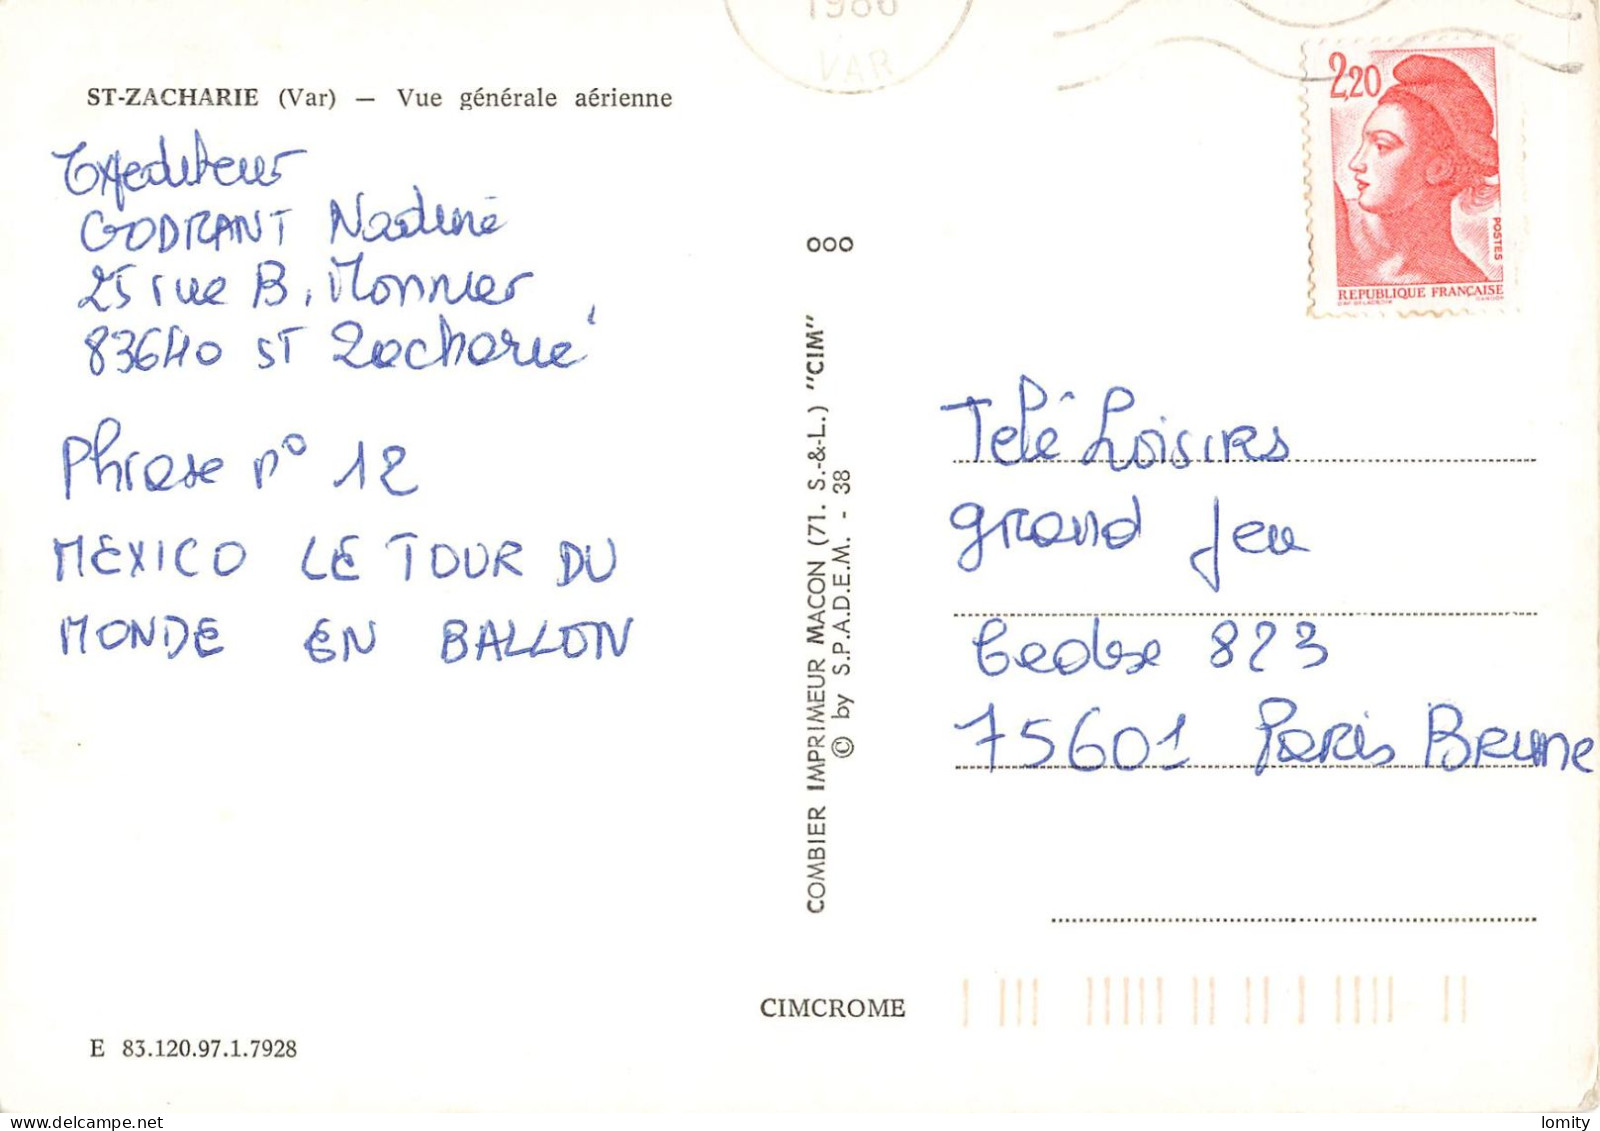 1986
VAR
ST-ZACHARIE (Var) — Vue générale aérienne
2,20
POSTES
REPUBLIQUE FRANÇAISE
Expediteur
GODRANT Nadine
25 rue B. Monnier
83640 ST Zacharie
Phrase n° 12
MEXICO LE TOUR DU
MONDE EN BALLON
000
COMBIER IMPRIMEUR MACON (71. S.-&-L.) "CIM"
© by S.P.A.D.E.M. - 38
Télé Loisirs
grand Jeu
Cedex 823
75601 Paris Brune
CIMCROME
E 83.120.97.1.7928
lomity